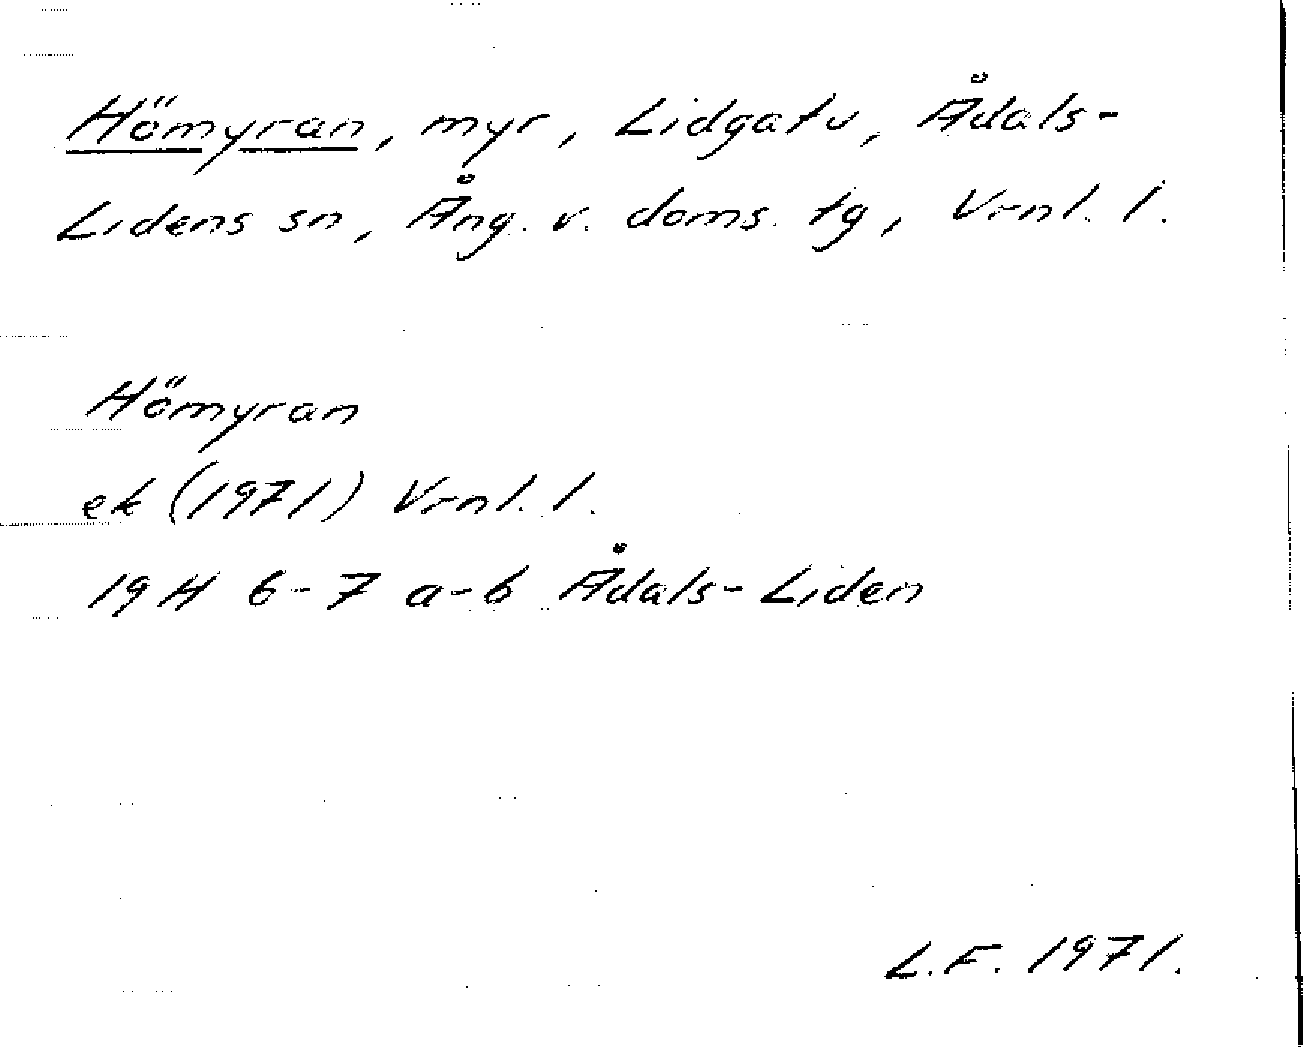 Hömyran, myr, Lidgatu, Ådals-
Lidens sn, Ång. v. doms. tg, Vrnl. l.
Hömyran
ek (1971) Vrnl. l.
19 H 6-7 a-b Ådals-Liden
L.F. 1971.